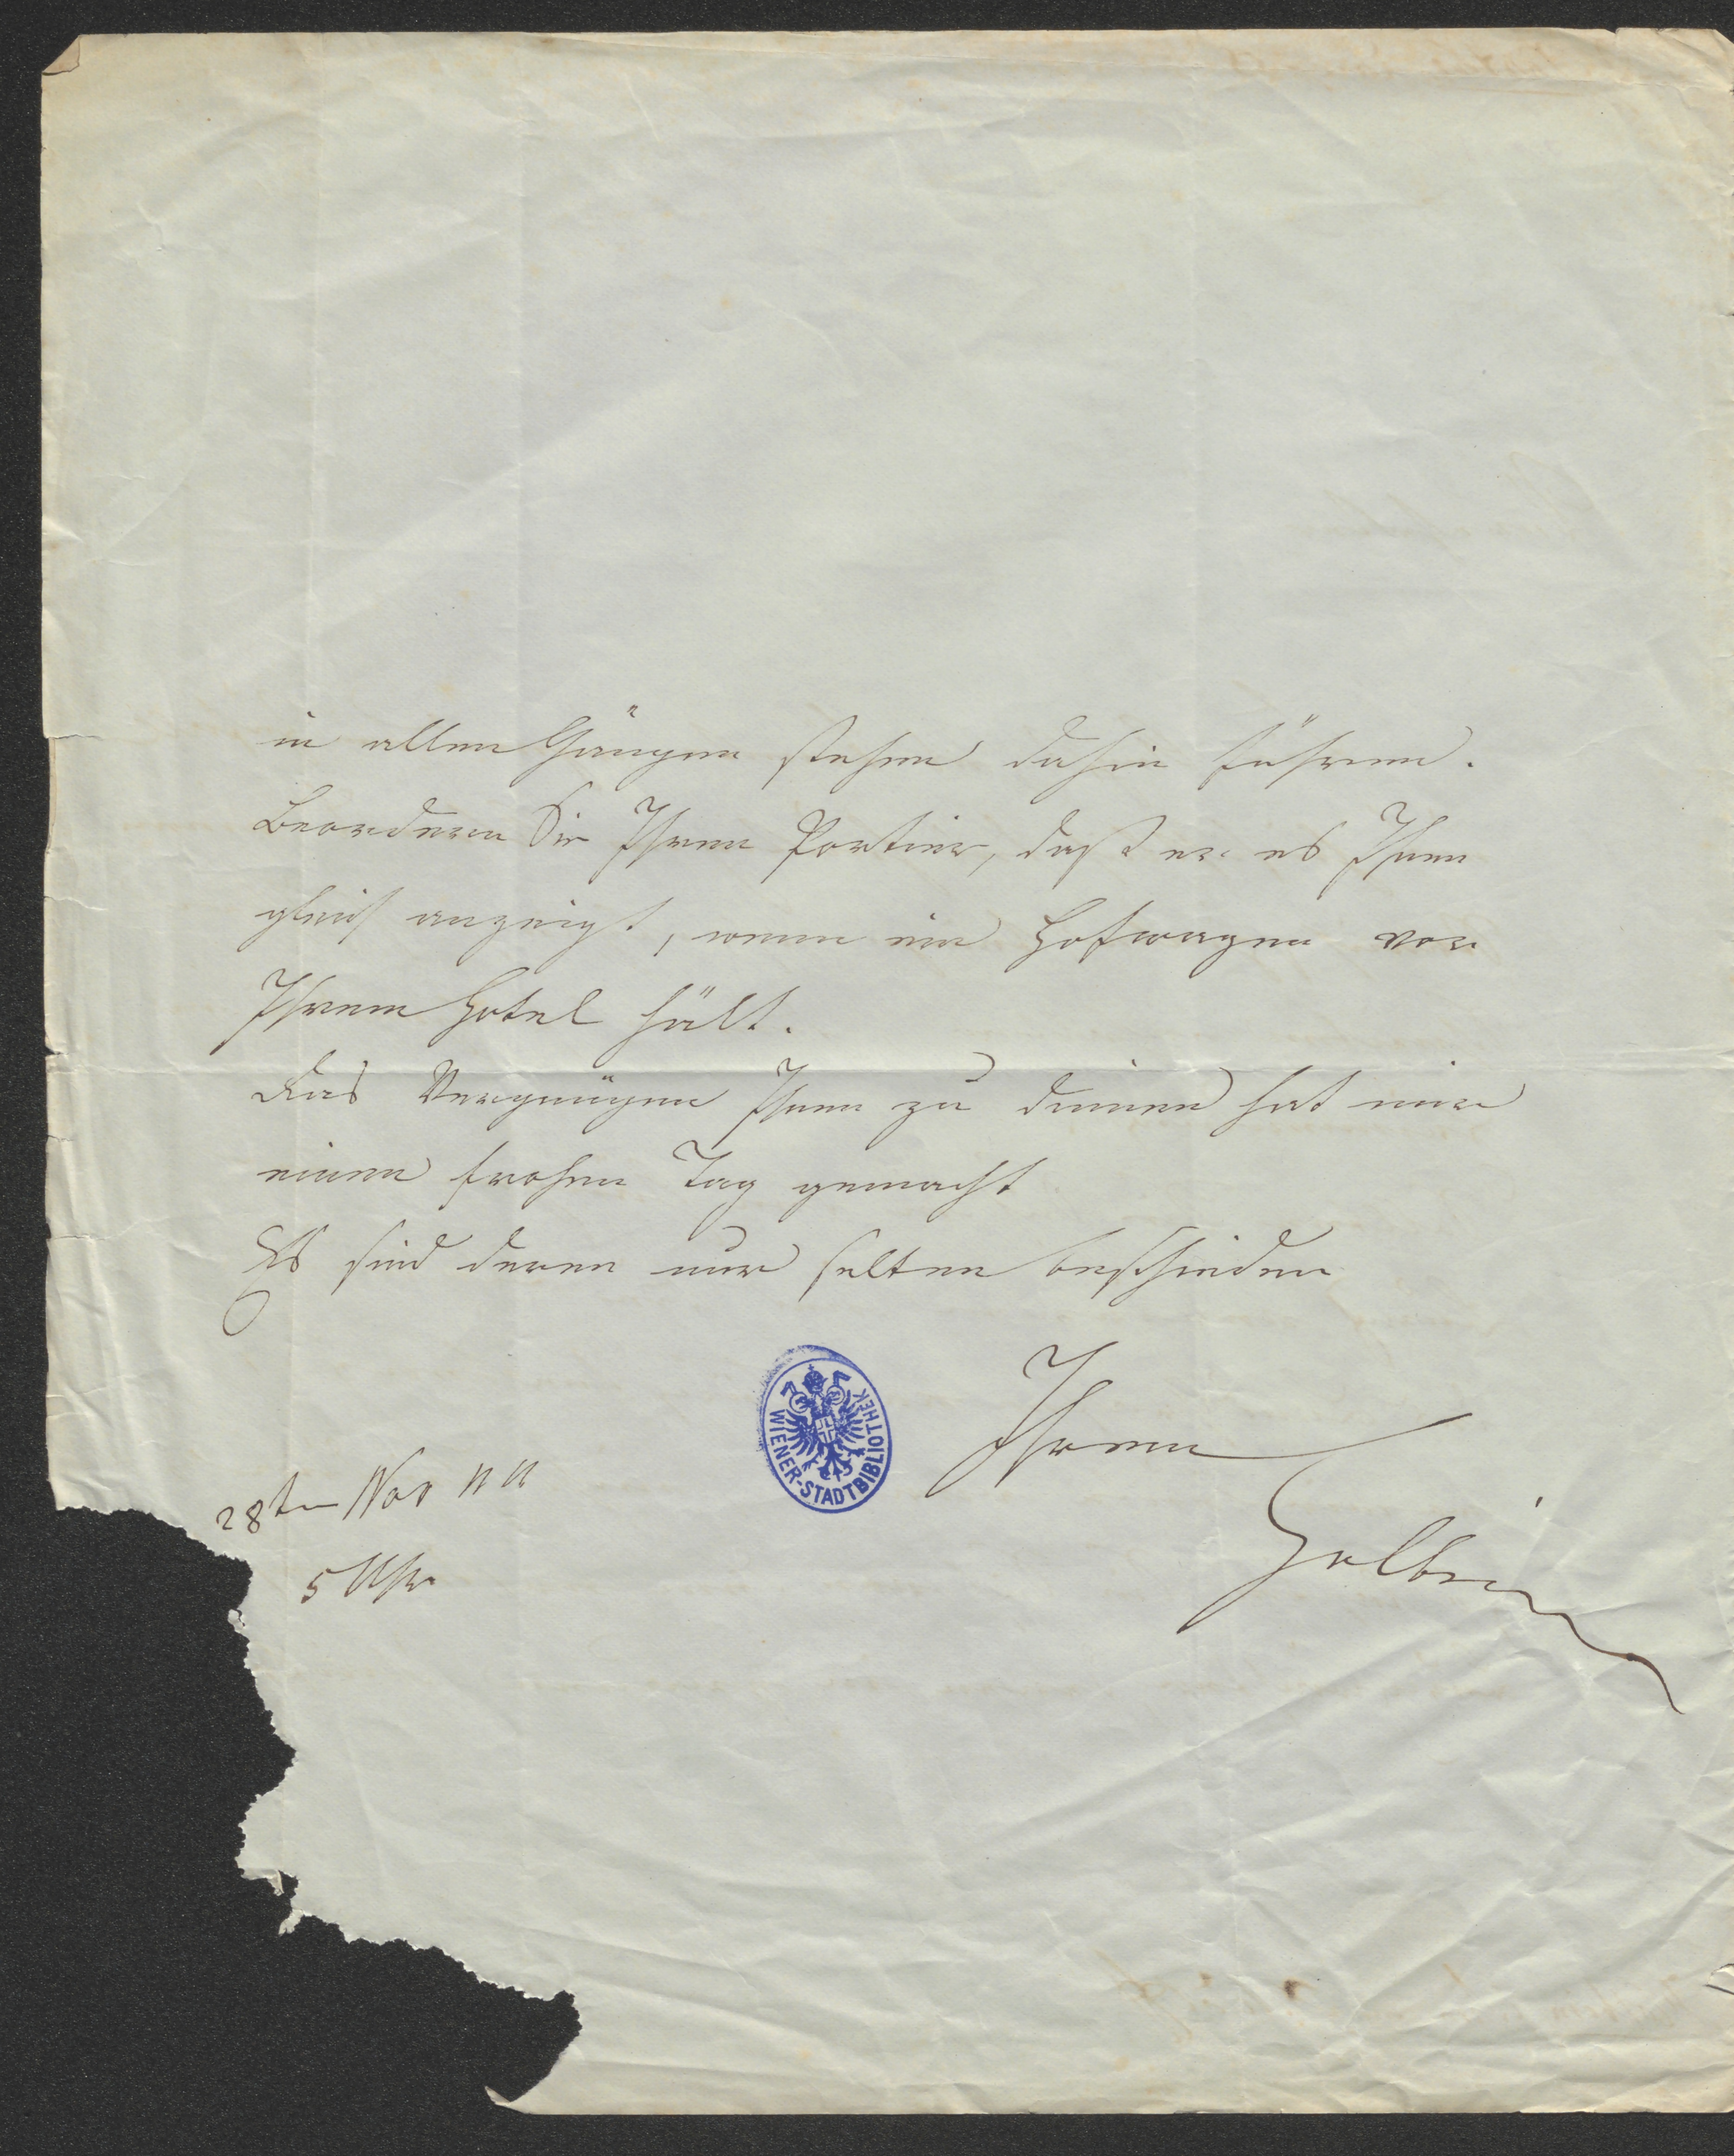 in allen Gängen stehen dahin führen.
Beordern Sie Ihren Portier, daß er es Ihnen
gleich anzeigt, wenn ein Hofwagen vor
Ihrem Hotel hält.
Das Vergnügen Ihnen zu dienen hat mir
einen frohen Tag gemacht
Es sind deren nur selten beschieden
Ihrem
Holbein
28ten Nov
5 Uhr
WIENER-STADTBIBLIOTHEK